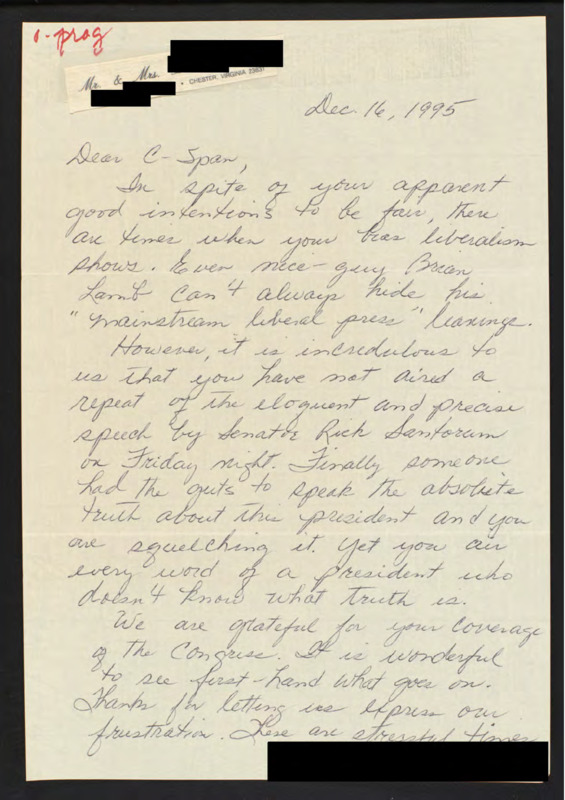 1-prog
Mr. & Mrs.
• CHESTER, VIRGINIA 23831
Dec. 16, 1995
Dear C-Span,
In spite of your apparent
good intentions to be fair, there
are times when your bias liberalism
shows. Even nice-guy Brian
Lamb can't always hide his
"mainstream liberal press" leanings.
However, it is incredulous to
us that you have not aired a
repeat of the eloquent and precise
speech by Senator Rick Santorum
on Friday night. Finally someone
had the guts to speak the absolute
truth about this president and you
are squelching it. Yet you air
every word of a president who
doesn't know what truth is.
We are grateful for your coverage
of the Congress. It is wonderful
to see first-hand what goes on.
Thanks for letting us express our
frustration. These are stressful times